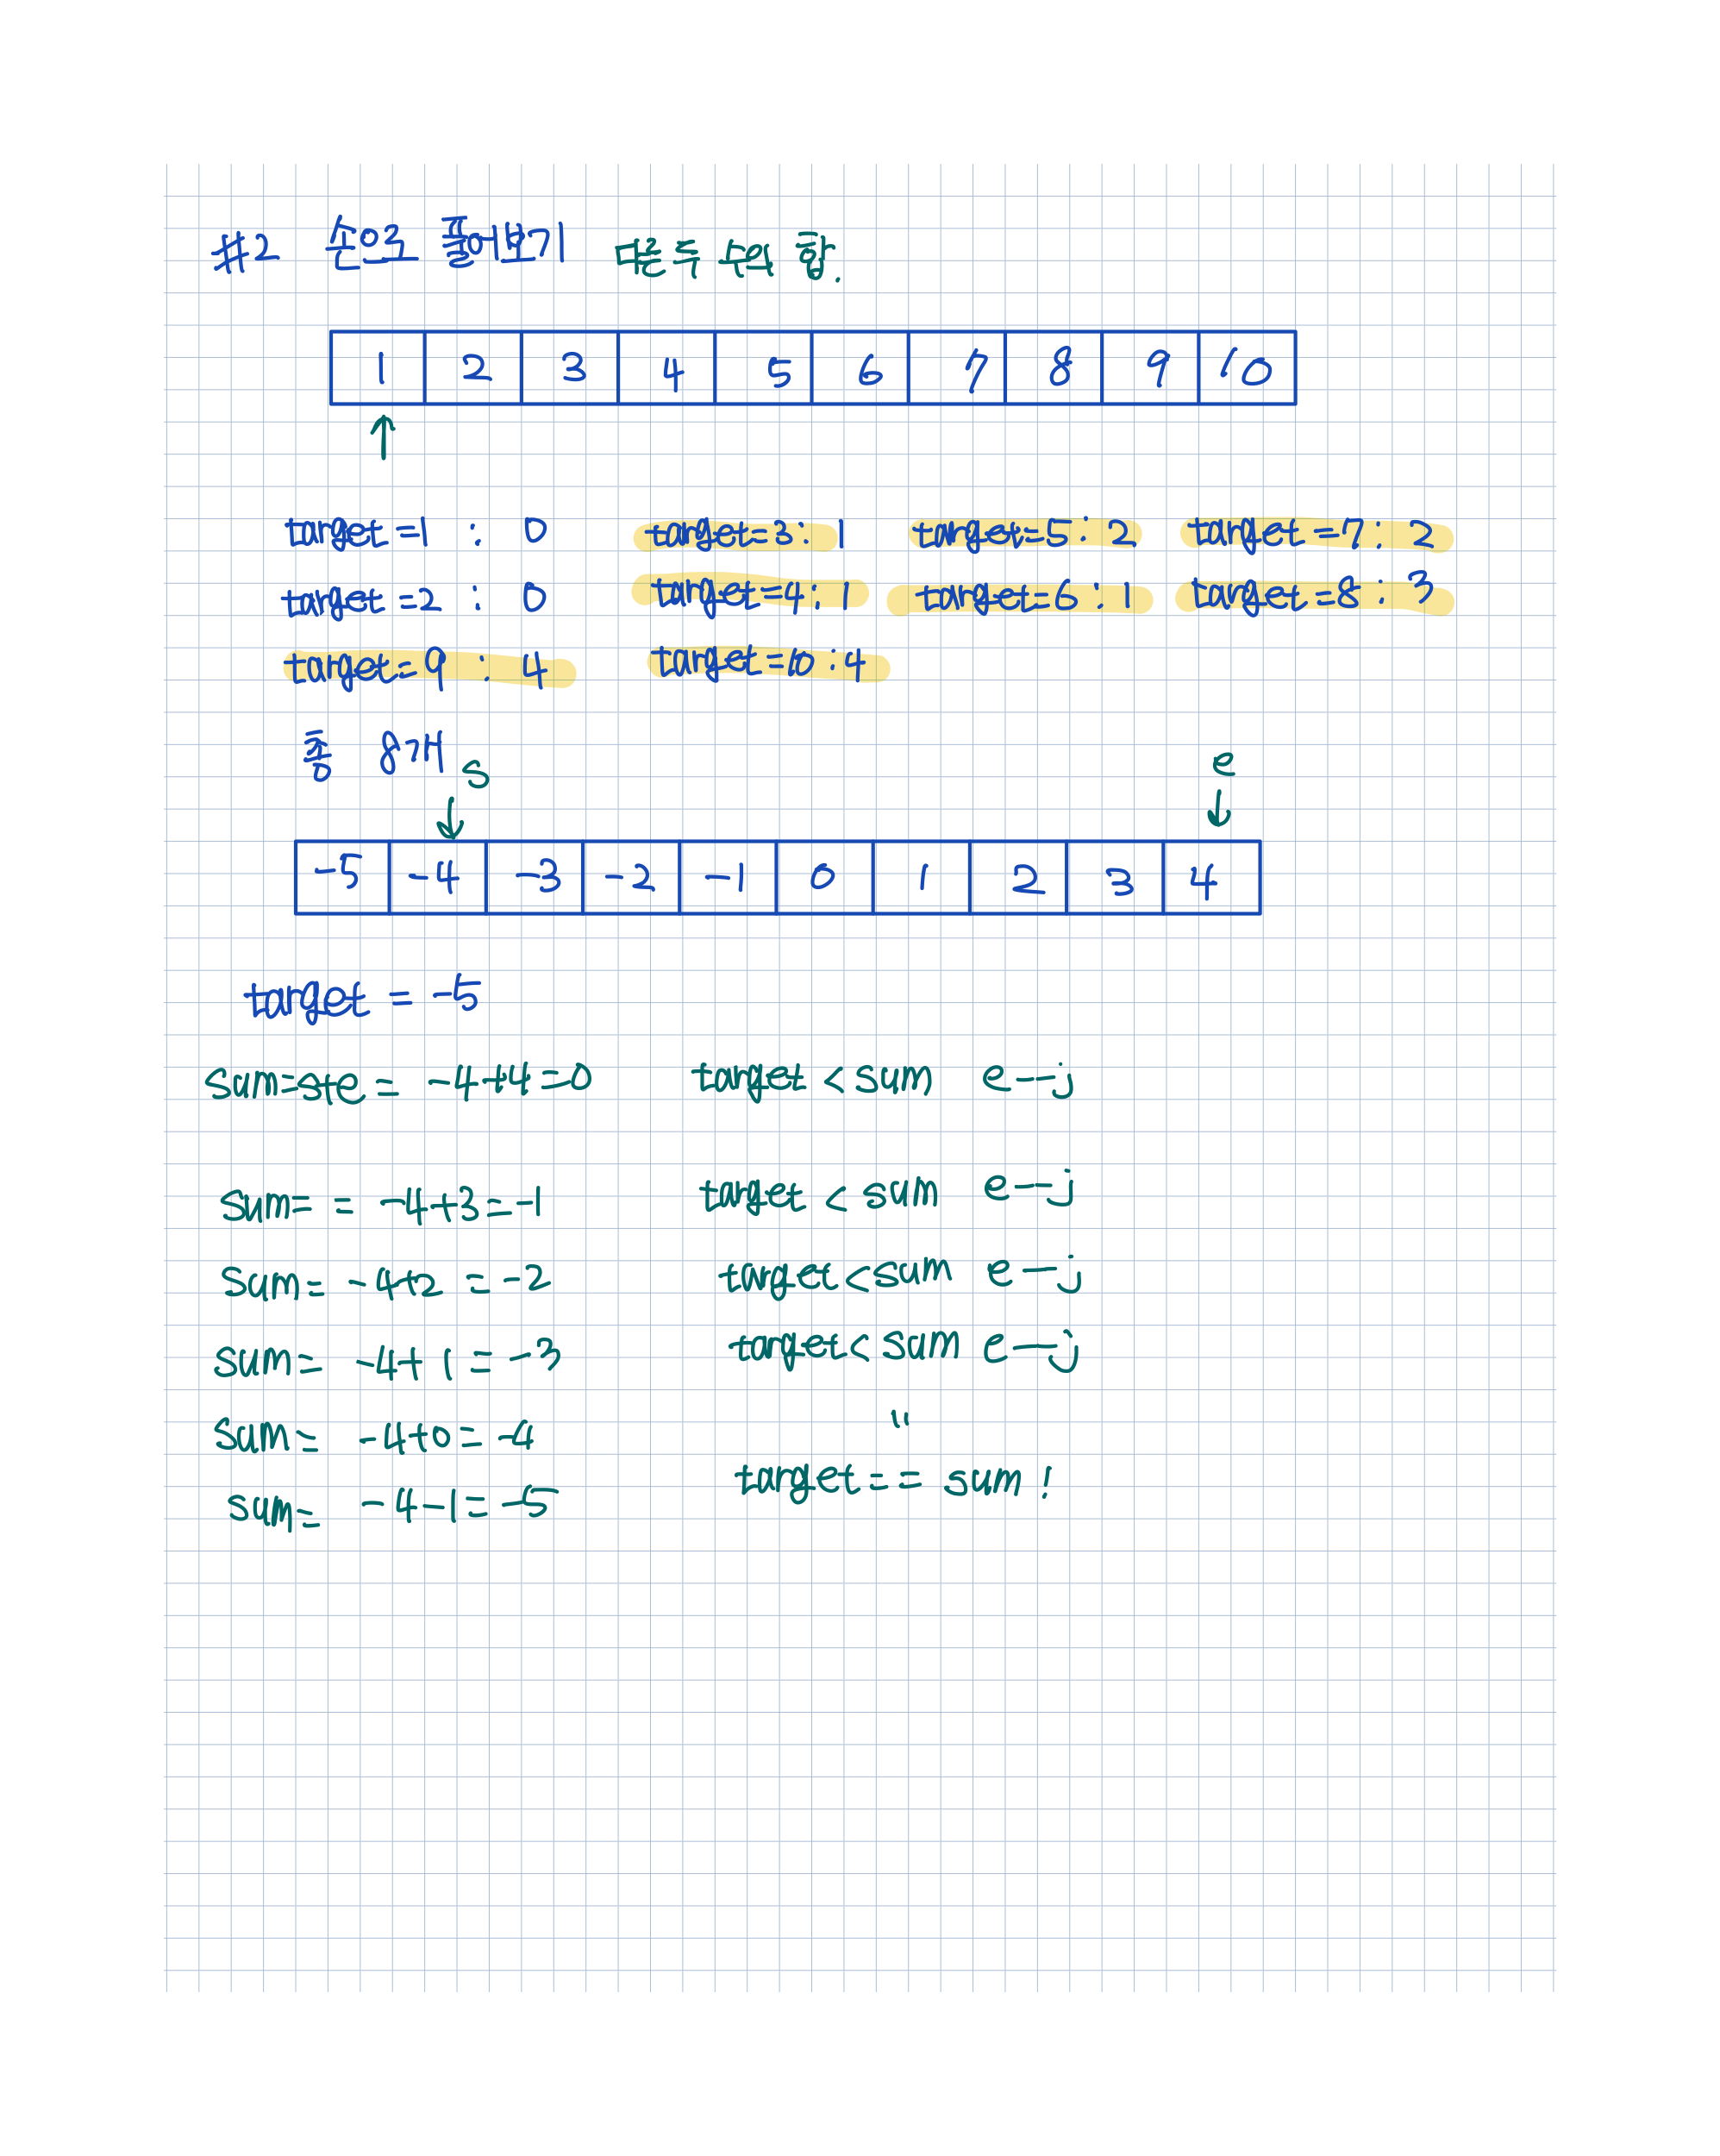 #2 손으로 풀어보기 다른 두 수의 합.
1 2 3 4 5 6 7 8 9 10
target=1 : 0 target=3: 1 target=5: 2 target=7: 2
target=2 : 0 target=4: 1 target=6: 1 target=8: 3
target=9 : 4 target=10:4
총 8개
s e
-5 -4 -3 -2 -1 0 1 2 3 4
target = -5
sum=s+e = -4+4=0 target < sum e--j
sum= = -4+3=-1 target < sum e--j
sum= -4+2 = -2 target<sum e--j
sum= -4+1 = -3 target<sum e--j
sum= -4+0=-4 "
sum= -4-1=-5 target== sum!